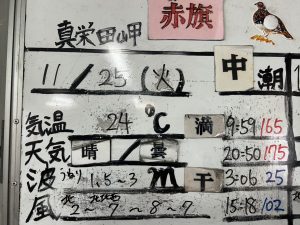 赤旗
真栄田岬
11/25(火) 中潮
気温 24℃ 満 9:59 165
天気 晴/曇 20:50 175
波 うねり 1.5~3m 干 3:06 25
風 北2~7~8~7 15:18 102